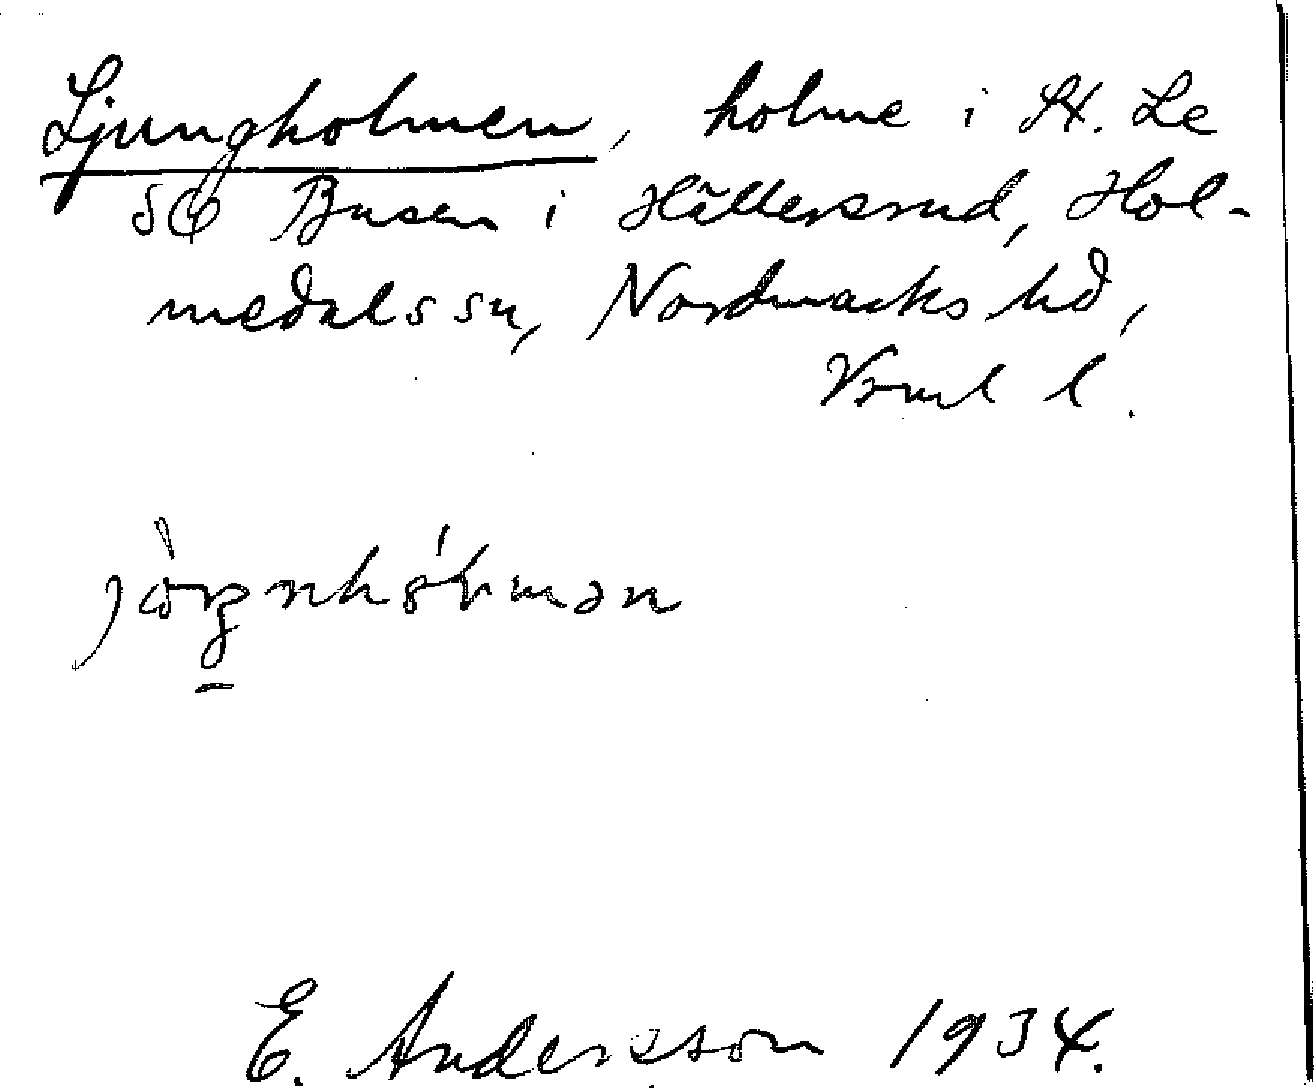 Ljungholmen, holme i St. Le
SO Busen i Hällersrud, Hol-
medals sn, Nordmarks hd,
Vrml l.
E. Andersson 1934.